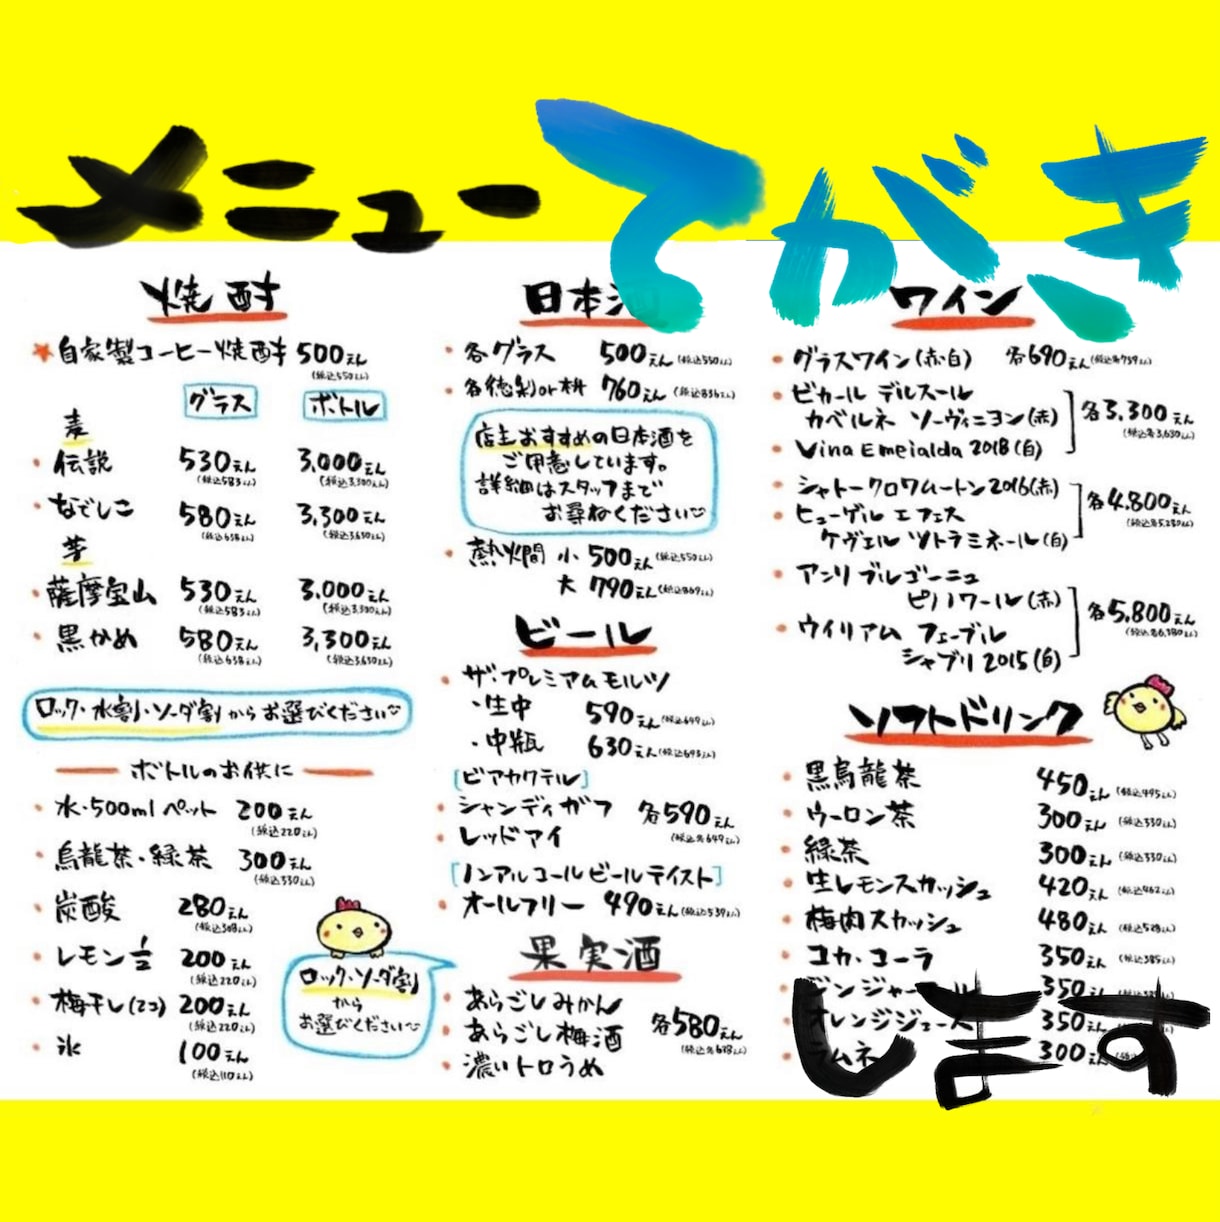 メニューてがき
焼酎
★自家製コーヒー焼酎 500えん
(税込550えん)
グラス ボトル
麦
・伝説 530えん 3,000えん
(税込583えん) (税込3,300えん)
・なでしこ 580えん 3,300えん
(税込638えん) (税込3,630えん)
芋
・薩摩宝山 530えん 3,000えん
(税込583えん) (税込3,300えん)
・黒かめ 580えん 3,300えん
(税込638えん) (税込3,630えん)
ロック・水割・ソーダ割からお選びください
ボトルのお供に
・水・500mlペット 200えん
(税込220えん)
・烏龍茶・緑茶 300えん
(税込330えん)
・炭酸 280えん
(税込308えん)
・レモン1/2 200えん
(税込220えん)
・梅干し(2コ) 200えん
(税込220えん)
・氷 100えん
(税込110えん)
日本
・各グラス 500えん(税込550えん)
・各徳利or枡 760えん(税込836えん)
店主おすすめの日本酒を
ご用意しています。
詳細はスタッフまで
お尋ねください
・熱燗 小 500えん(税込550えん)
大 790えん(税込869えん)
ビール
・ザ・プレミアムモルツ
・生中 590えん(税込649えん)
・中瓶 630えん(税込693えん)
[ビアカクテル]
・シャンディガフ
・レッドアイ
各590えん
(税込各649えん)
[ノンアルコールビールテイスト]
・オールフリー 490えん(税込539えん)
果実酒
・あらごしみかん
・あらごし梅酒
・濃いトロうめ
各580えん
(税込各638えん)
ロック・ソーダ割
から
お選びください
ワイン
・グラスワイン(赤・白) 各690えん(税込各759えん)
・ピカール デルスール
カベルネ ソーヴィニヨン(赤)
・Vina Emeialda 2018(白)
各3,300えん
(税込各3,630えん)
・シャトークロワムートン2016(赤)
・ヒューゲル エフェス
ケヴェル ツトラミネール(白)
各4,800えん
(税込各5,280えん)
・アンリ ブルゴーニュ
ピノノワール(赤)
・ウイリアム フェーブル
シャブリ 2015(白)
各5,800えん
(税込各6,380えん)
ソフトドリンク
・黒烏龍茶 450えん(税込495えん)
・ウーロン茶 300えん(税込330えん)
・緑茶 300えん(税込330えん)
・生レモンスカッシュ 420えん(税込462えん)
・梅肉スカッシュ 480えん(税込528えん)
・コカ・コーラ 350えん(税込385えん)
・ジンジャー 350
・オレンジジュース 350えん
・ラムネ 300えん
します